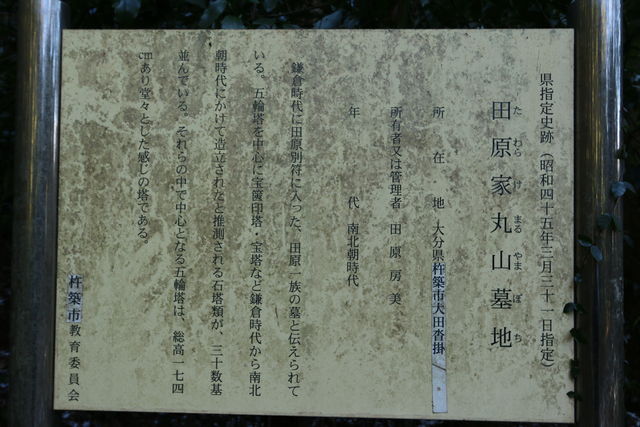 県指定史跡（昭和四十五年三月三十一日指定）
たわらけまるやまぼち
田原家丸山墓地
所在地 大分県杵築市大田沓掛
所有者又は管理者 田原房美
年代 南北朝時代
鎌倉時代に田原別符に入った、田原一族の墓と伝えられて
いる。五輪塔を中心に宝篋印塔・宝塔など鎌倉時代から南北
朝時代にかけて造立されたと推測される石塔類が、三十数基
並んでいる。それらの中で中心となる五輪塔は、総高一七四
cmあり堂々とした感じの塔である。
杵築市教育委員会